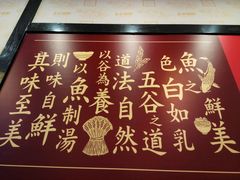 魚之鮮美
色白如乳
五谷之道
道法自然
以谷為養
以魚制湯
則味自鮮
其味至美